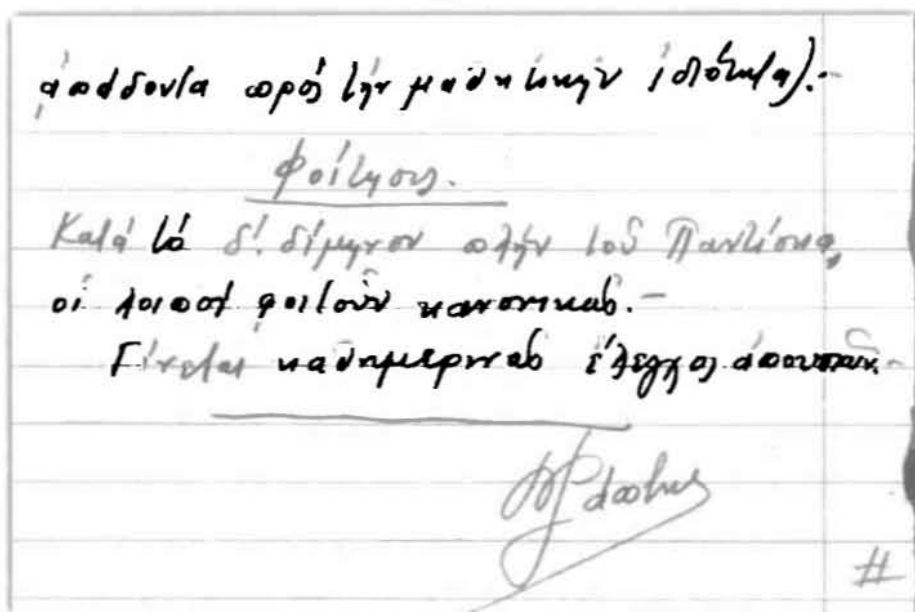 ἀπᾴδοντα πρὸς τὴν μαθητικὴν ἰδιότητα).-
Φοίτησις.
Κατὰ τὸ δ! δίμηνον πλὴν τοῦ Παντίσκα,
οἱ λοιποὶ φοιτοῦν κανονικῶς.-
Γίνεται καθημερινῶς ἔλεγχος ἀπουσιῶν.-
#